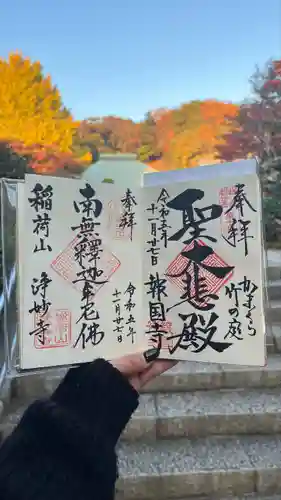 奉拝
令和五年
十一月廿七日
聖大悲殿
かまくら
竹の庭
報国寺
奉拝
令和五年
十一月廿七日
南無釋迦牟尼佛
稲荷山
浄妙寺